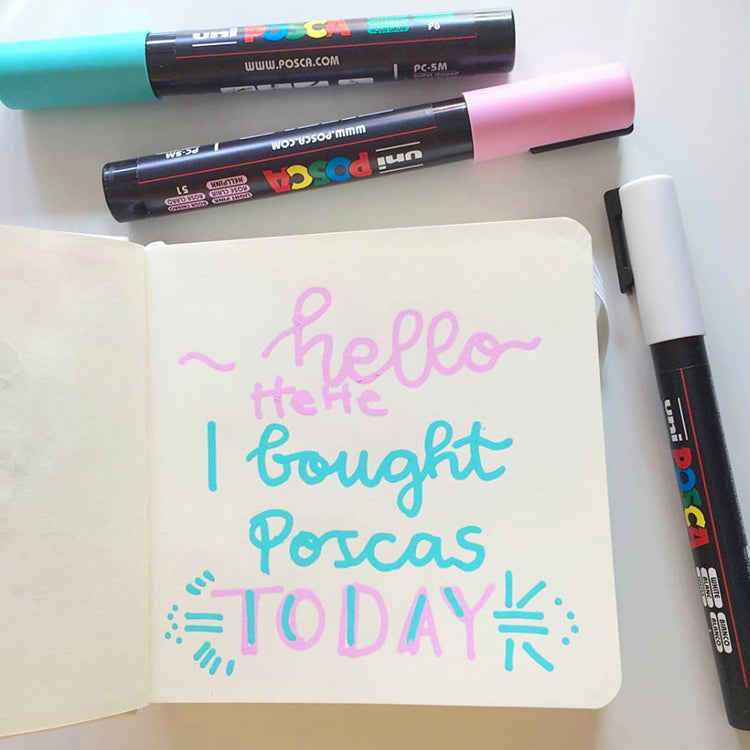 uni POSCA P6
WWW.POSCA.COM PC-5M
WWW.POSCA.COM PC-5M
uni POSCA
LIGHT PINK
ROSE CLAIR
HELLPINK
ROSA CLARO
51
~ hello
HeHe
I bought
Poscas
TODAY
uni POSCA
WHITE
BLANC
BIANCO
BLANCO